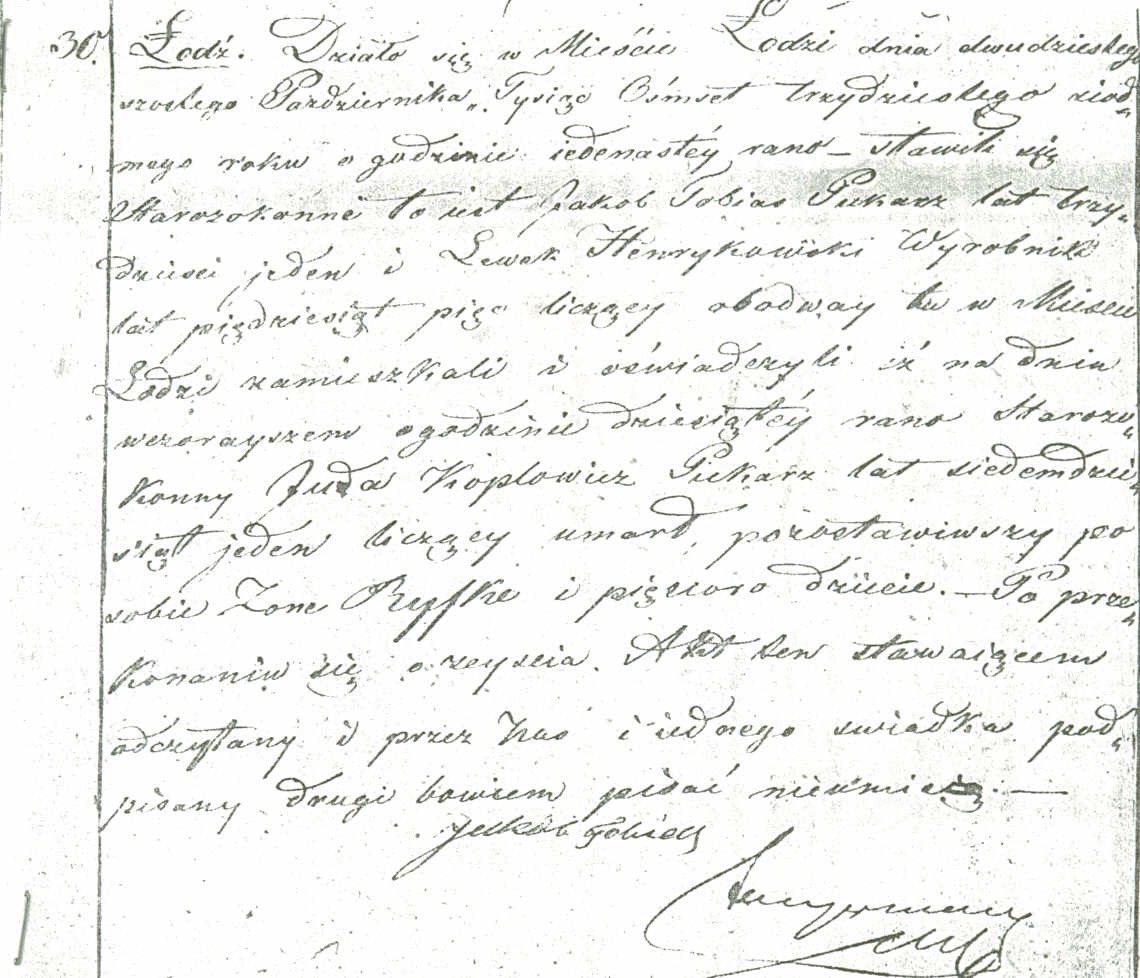 30. Łodź. Działo się w Mieście Łodzi dnia dwudziestego
szostego Pazdziernika „ Tysiąc Ośmset trzydziestego siod„
mego roku o godzinie iedenastéy rano – stawili się
Starozakonne to iest Jakob Tobias Piekarz lat trzy„
dziesci jeden i Lewek Henrykowski Wyrobnik
lat pięgdziesiąt pięc liczący obadway tu w Miescie
Łodzi zamieszkali i oświadczyli iż na dniu
wczorayszem o godzinie dziesiątéy rano Staroza„
konny Juda Koplowicz Piekarz lat siedemdzie„
siąt jeden liczący umarł, pozostawiwszy po
sobie Zone Ryfke i pięcioro dziecie. – Po prze„
konaniu się o zeyscia. Akt ten stawaiącem
odczytany i przez Nas i iednego swiadka pod„
pisany drugi bowiem pisać nieumie. —
Jakob Tobias